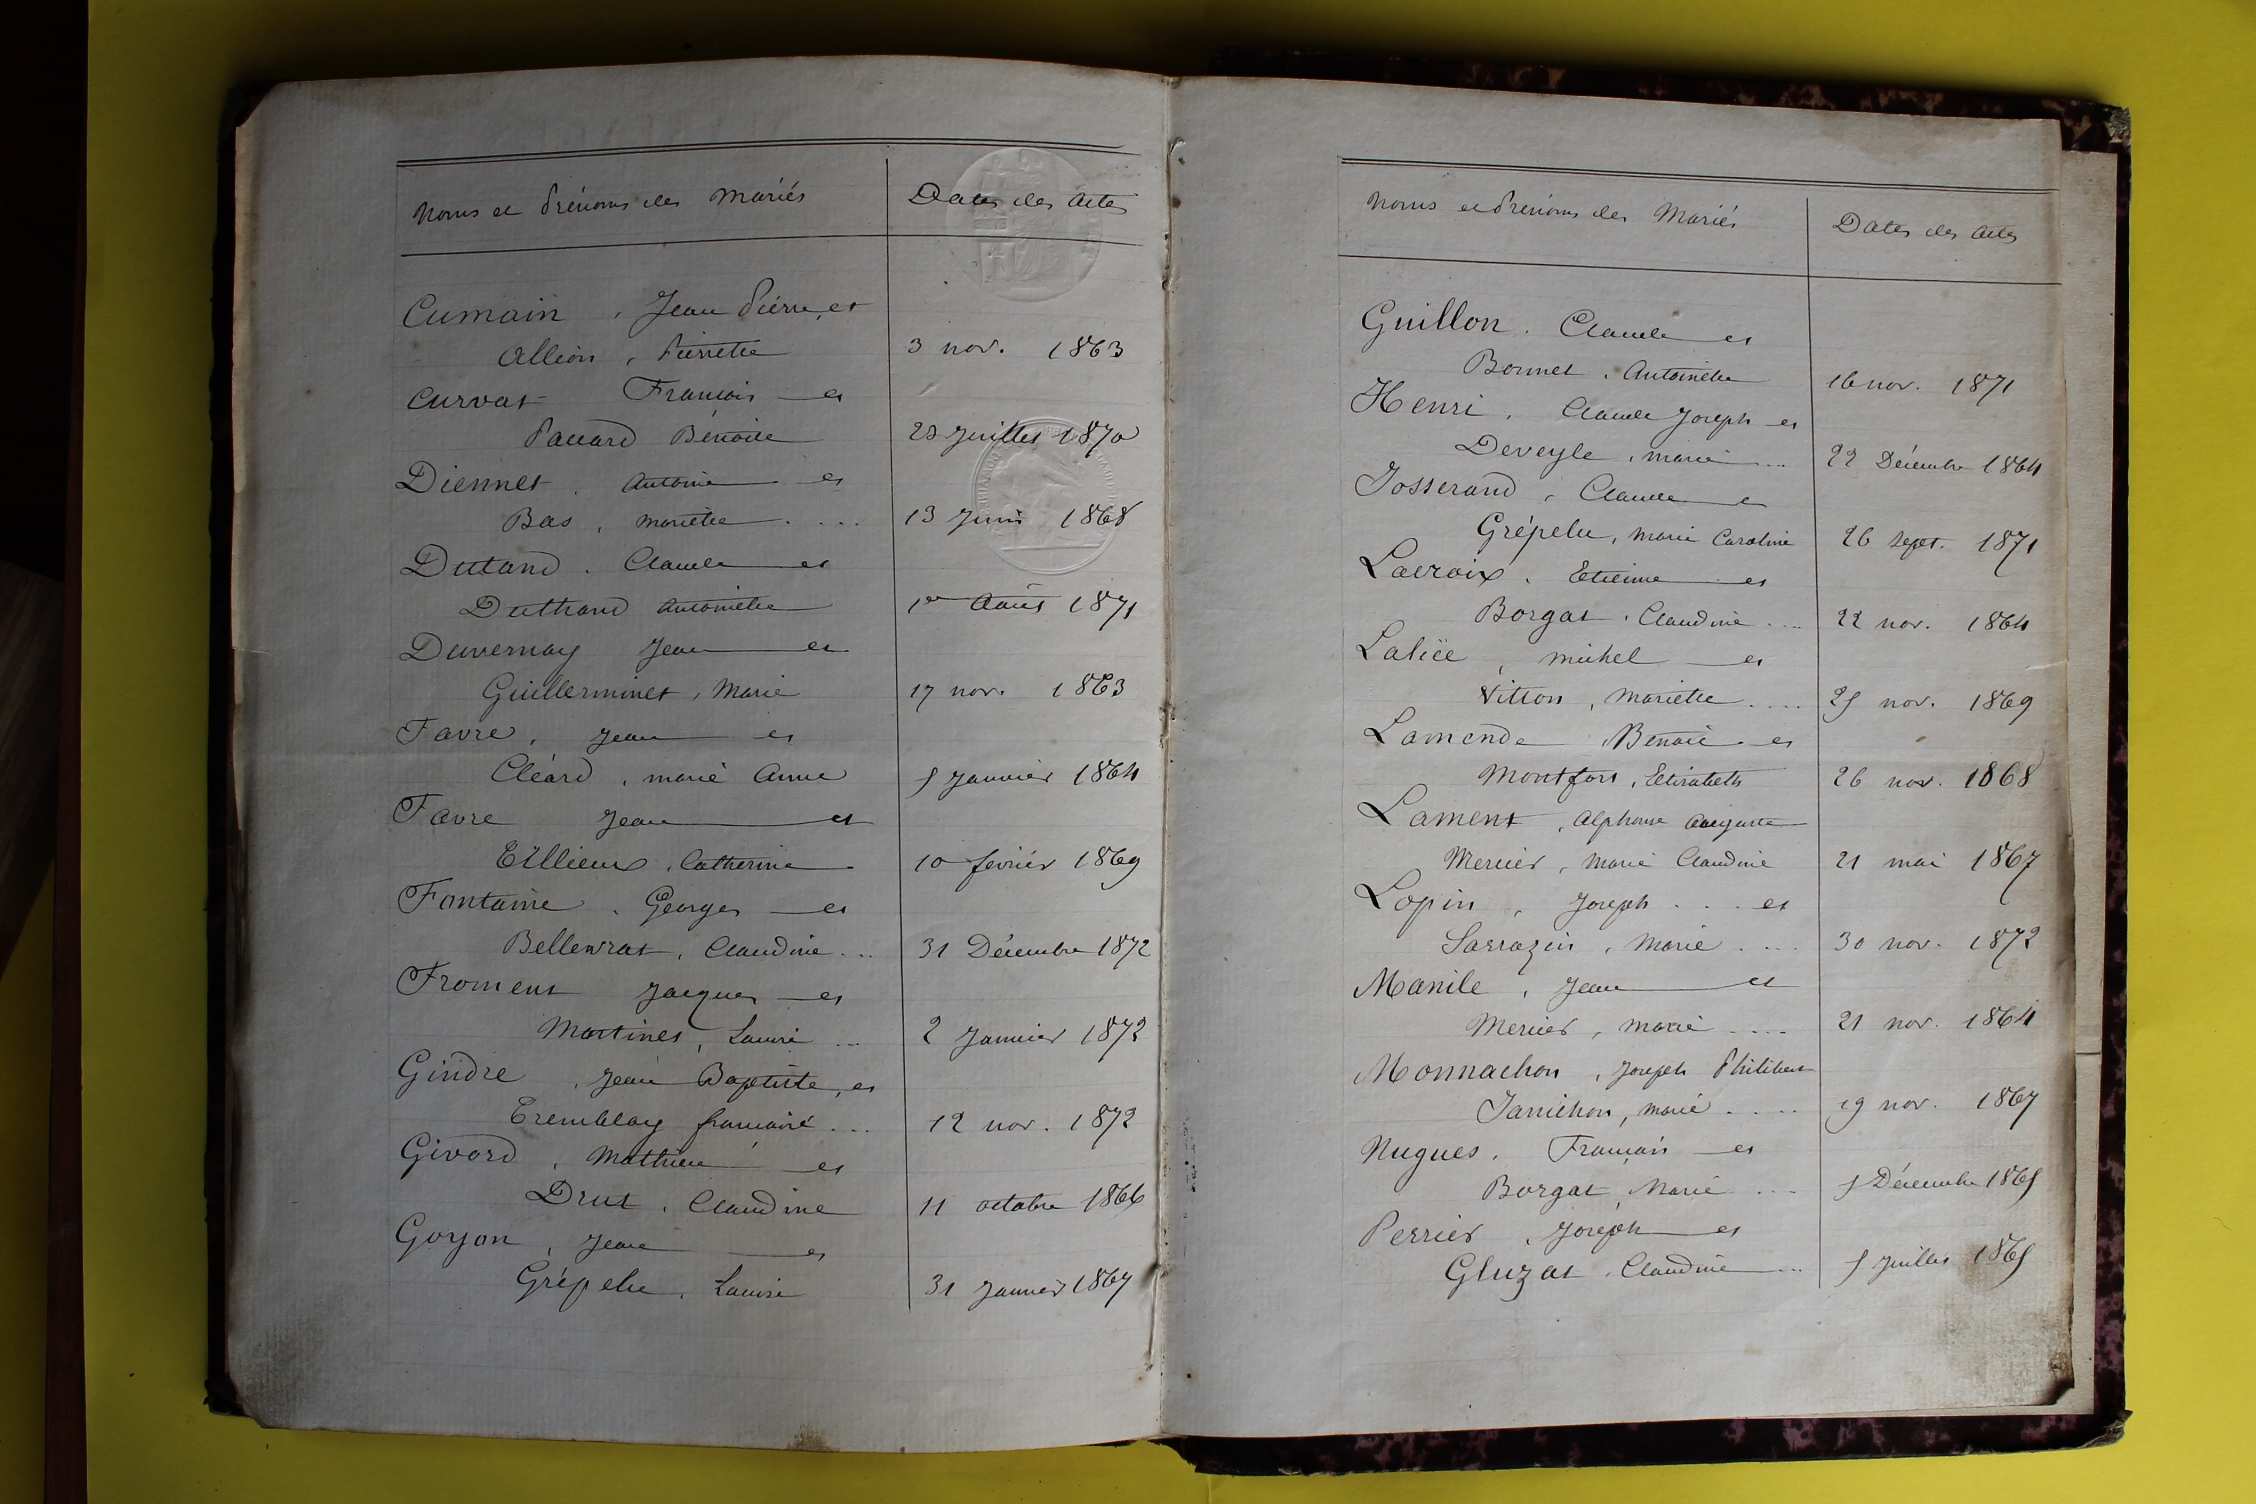 Noms et Prénoms des Mariés Dates des Actes
Cumain, Jean Pierre, et
Allion, Pierrette 3 nov. 1863
Curvat François et
Paccard Benoite 23 Juillet 1870
Diennet, Antoine et
Bas, Mariette .... 13 Juin 1868
Dutand, Claude et
Duthand Antoinette 1er Août 1871
Duvernay Jean et
Guillerminet, Marie 17 nov. 1863
Favre, Jean et
Cléard, marie Anne 5 Janvier 1864
Favre Jean et
Tillieux, Catherine 10 février 1869
Fontaine, Georges et
Bellevrat, Claudine ... 31 Décembre 1872
Froment Jacques et
Martinet, Louise ... 2 Janvier 1872
Gindre, Jean Baptiste, et
Tremblay françoise ... 12 nov. 1872
Givord, Mathieu et
Drut, Claudine 11 octobre 1866
Goyon, Jean et
Grépelu, Louise 31 Janvier 1867
Noms et Prénoms des Mariés Dates des Actes
Guillon, Claude et
Bonnet, Antoinette 16 nov. 1871
Henri, Claude Joseph et
Deveyle, marie ... 22 Décembre 1864
Josserand, Claude et
Grépelu, Marie Caroline 26 sept. 1871
Lacroix, Etienne et
Borgat, Claudine .... 22 nov. 1864
Laliée, michel et
Vitton, Mariette .... 25 nov. 1869
Lamende Benoit et
Montfort, Elisabeth 26 nov. 1868
Lament, Alphonse Auguste
Mercier, Marie Claudine 21 mai 1867
Lopin, Joseph ... et
Sarrazin, Marie .... 30 nov. 1872
Manile, Jean et
Mercier, marie .... 21 nov. 1864
Monnachon, Joseph Philibert
Janichon, marie .... 19 nov. 1867
Nugues, François et
Borgat, Marie ... 5 Décembre 1865
Perrier, Joseph et
Gluzat, Claudine ... 5 Juillet 1865